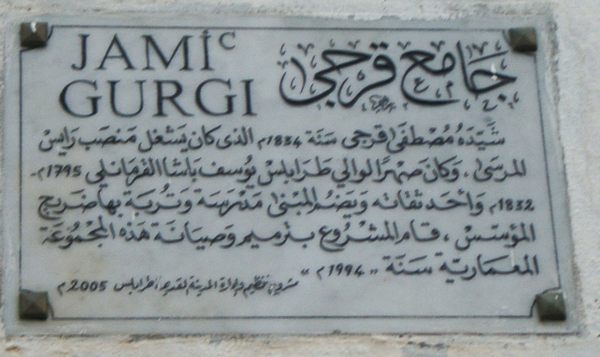 JAMIᶜ
GURGI
جامع قرجي
شيّده مصطفى قرجى سنة 1834م الذى كان يشغل منصب رايس
المرسى، وكان صهرا للوالي طرابلس يوسف باشا القرمانلي 1795م-
1832م وأحد ثقاته ويضم المبنى مدرسة وتربة بها ضريح
المؤسس، قام المشروع بترميم وصيانة هذه المجموعة
المعمارية سنة "1994م"
مشروع تنظيم وإدارة المدينة القديمة طرابلس 2005م